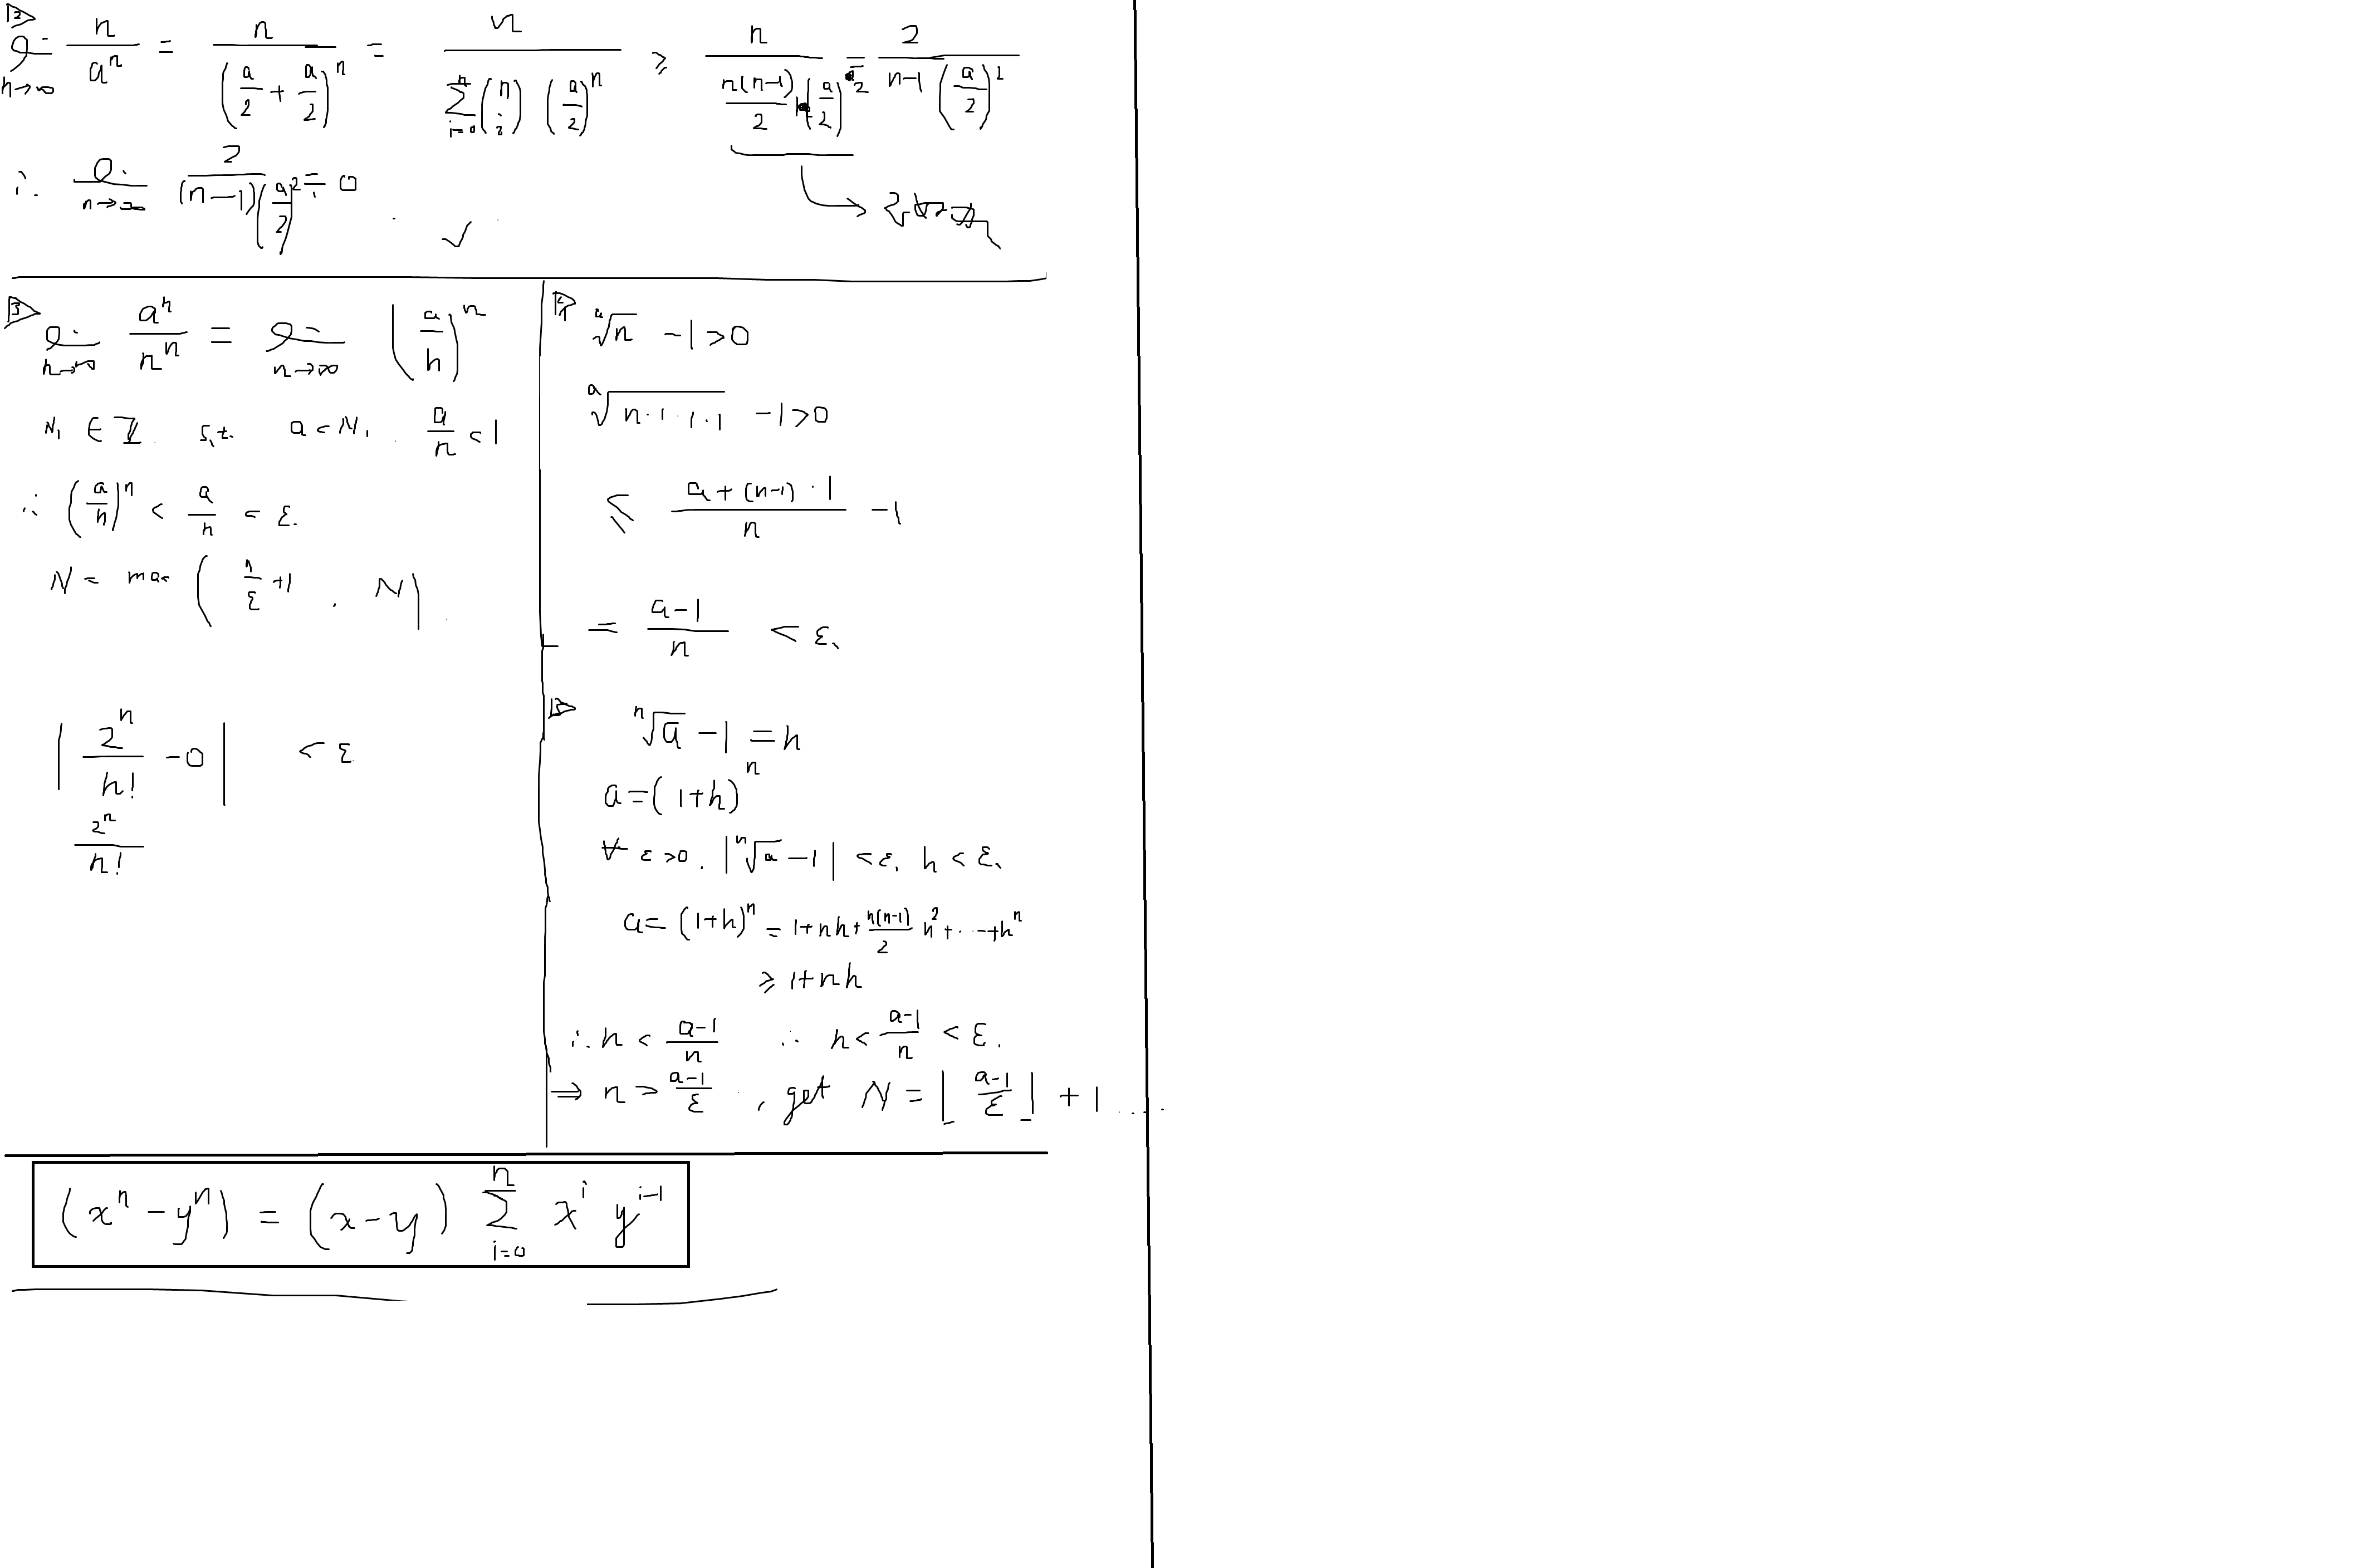 2
lim n→∞ n/aⁿ = n/(a/2 + a/2)ⁿ = n/(∑_{i=0}^{n} (n i) (a/2)ⁿ) ≥ n/(n(n-1)/2 (a/2)²) = 2/(n-1 (a/2)²)
∴ lim n→∞ 2/((n-1)(a/2)²) = 0 ✓
3
lim n→∞ aⁿ/nⁿ = lim n→∞ (a/n)ⁿ
N₁ ∈ ℤ s.t. a < N₁. a/n < 1
∴ (a/n)ⁿ < a/n < ε.
N = max ( n/ε +1 , N )
| 2ⁿ/n! - 0 | < ε
2ⁿ/n!
4
ᵃ√n - 1 > 0
ᵃ√(n·1·1·1) - 1 > 0
≤ (a + (n-1)·1)/n - 1
= (a-1)/n < ε.
5
ⁿ√a - 1 = h
a = (1+h)ⁿ
∀ ε>0. |ⁿ√a - 1| < ε, h < ε.
a = (1+h)ⁿ = 1+nh+ n(n-1)/2 h² + ... + hⁿ
≥ 1+nh
∴ h < (a-1)/n ∴ h < (a-1)/n < ε.
⇒ n > (a-1)/ε , get N = ⌊(a-1)/ε⌋ + 1 ....
(xⁿ - yⁿ) = (x-y) ∑_{i=0}^{n} xⁱ yⁱ⁻¹